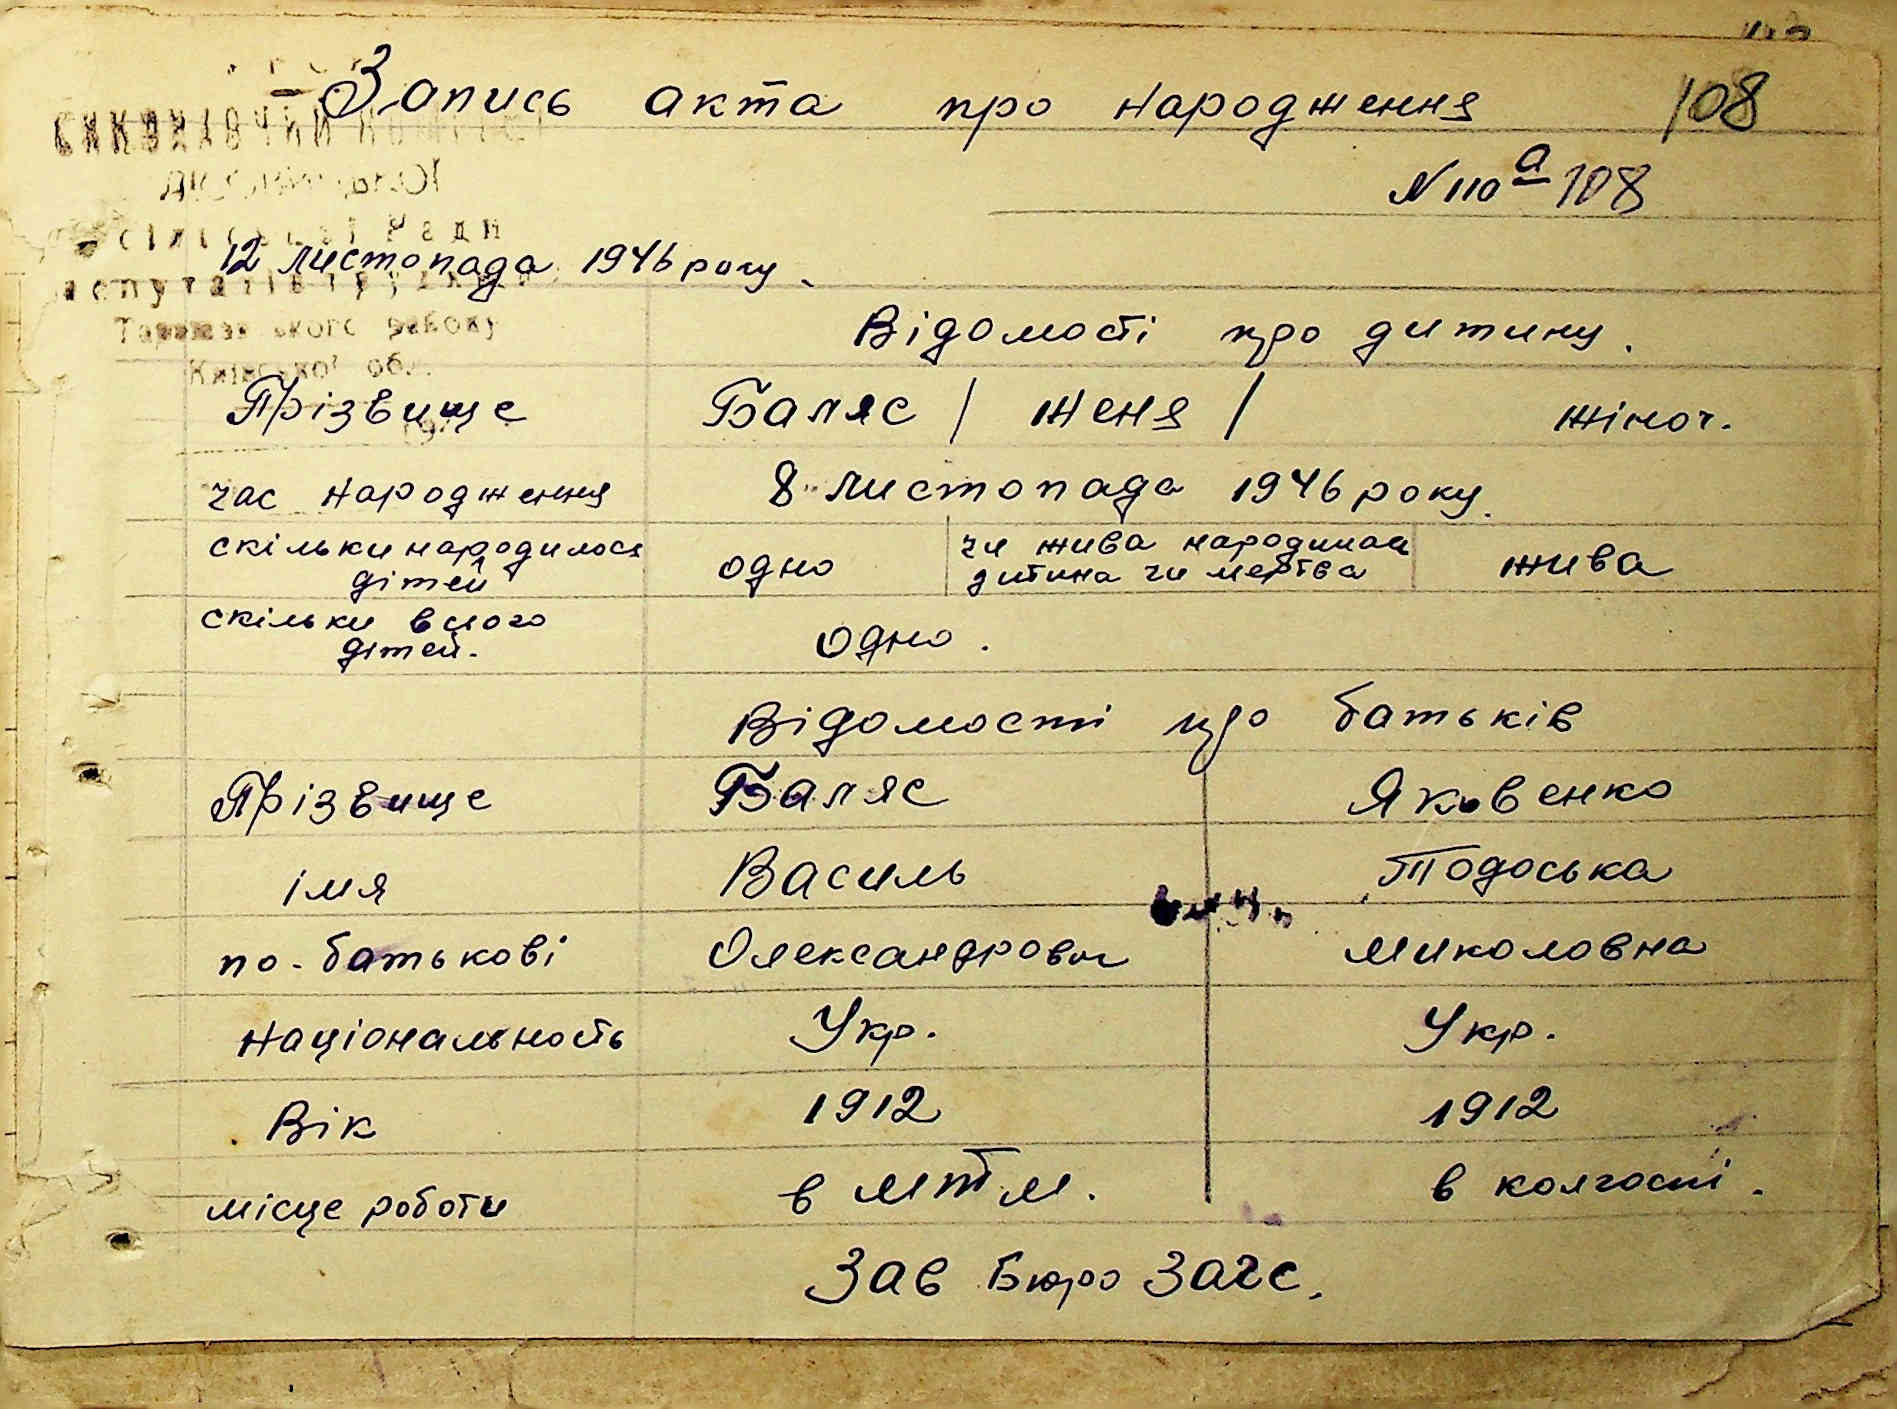 Запись акта про народження 108
N 110 а 108
Сільської Ради
12 листопада 1946 року
депутатів трудящих
ського району
Київської обл.
Відомості про дитину.
Прізвище Баляс / Женя / жіноч.
час народження 8 листопада 1946 року.
скільки народилося дітей одно чи жива народилась дитина чи мертва жива
скільки всього дітей. одно.
Відомості про батьків
Прізвище Баляс Яковенко
імя Василь Тодоська
по-батькові Олександрович Миколовна
Національность Укр. Укр.
Вік 1912 1912
місце роботи в мтм. в колгоспі.
Зав Бюро Загс.